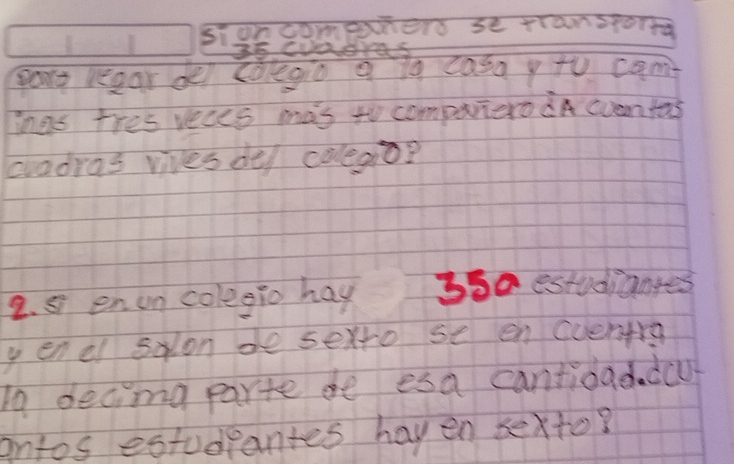 si on compañero se transporta
35 cuadras
para llegar del colegio a la casa y tu cam-
inas tres veces más tu compañero ¿A cuantas
cuadras vives del colegio?
2. si en un colegio hay 350 estudiantes
y en el salon de sexto se en cuentra
la decima parte de esa cantidad.¿cu-
antos estudiantes hay en sexto?